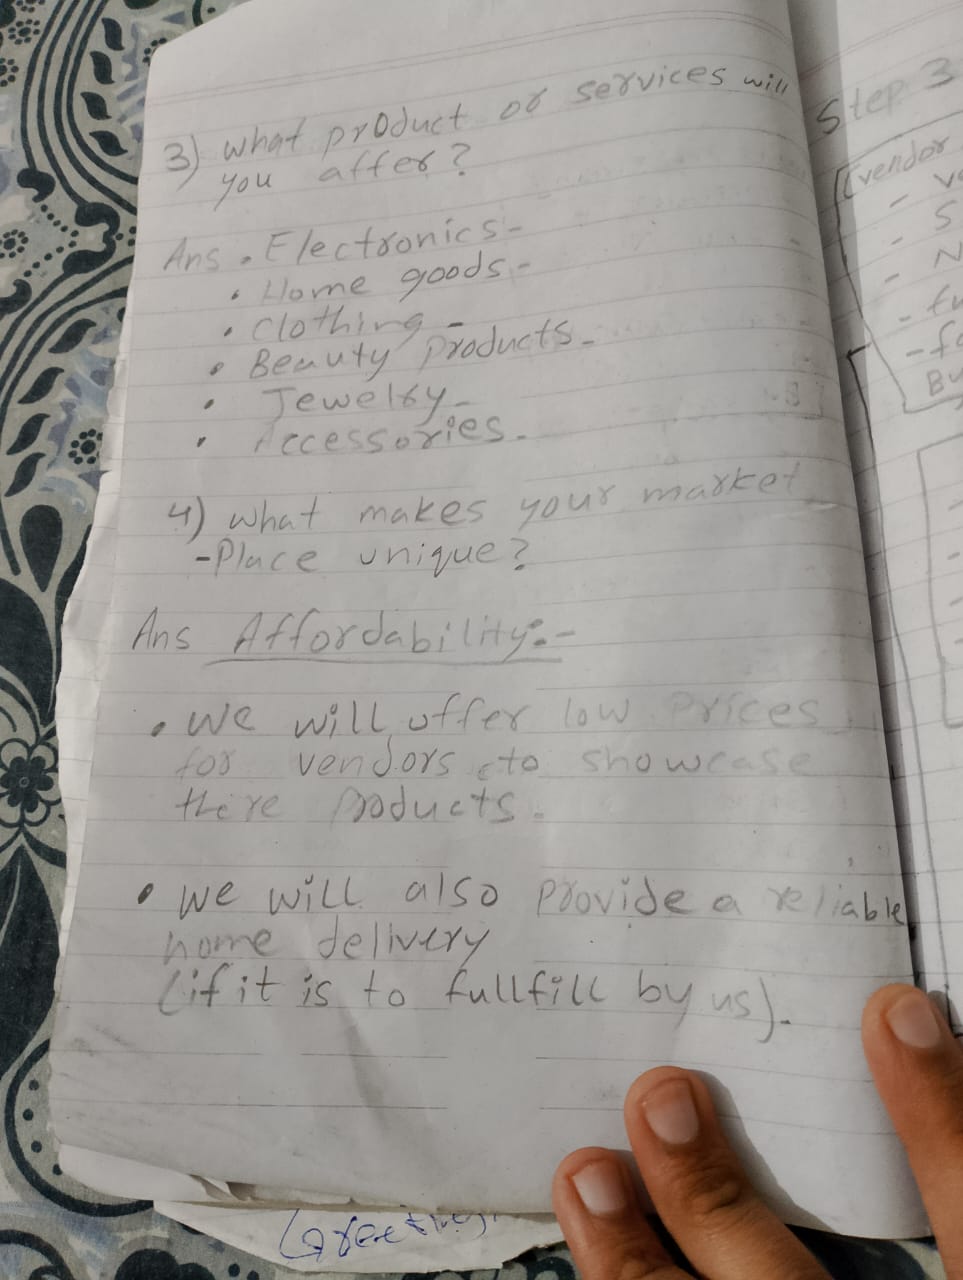 3) what product or services will
you affer?
Ans . Electronics-
• Home goods-
• Clothing-
• Beauty products-
• Jewelry-
• Accessories-
4) what makes your market
-Place unique?
Ans Affordability:-
• we will offer low prices
for vendors to showcase
there products.
• we will also provide a reliable
home delivery
(if it is to fullfill by us).
Step 3
(vendor
- S
- N
- fu
- fo
Bu
Greeting